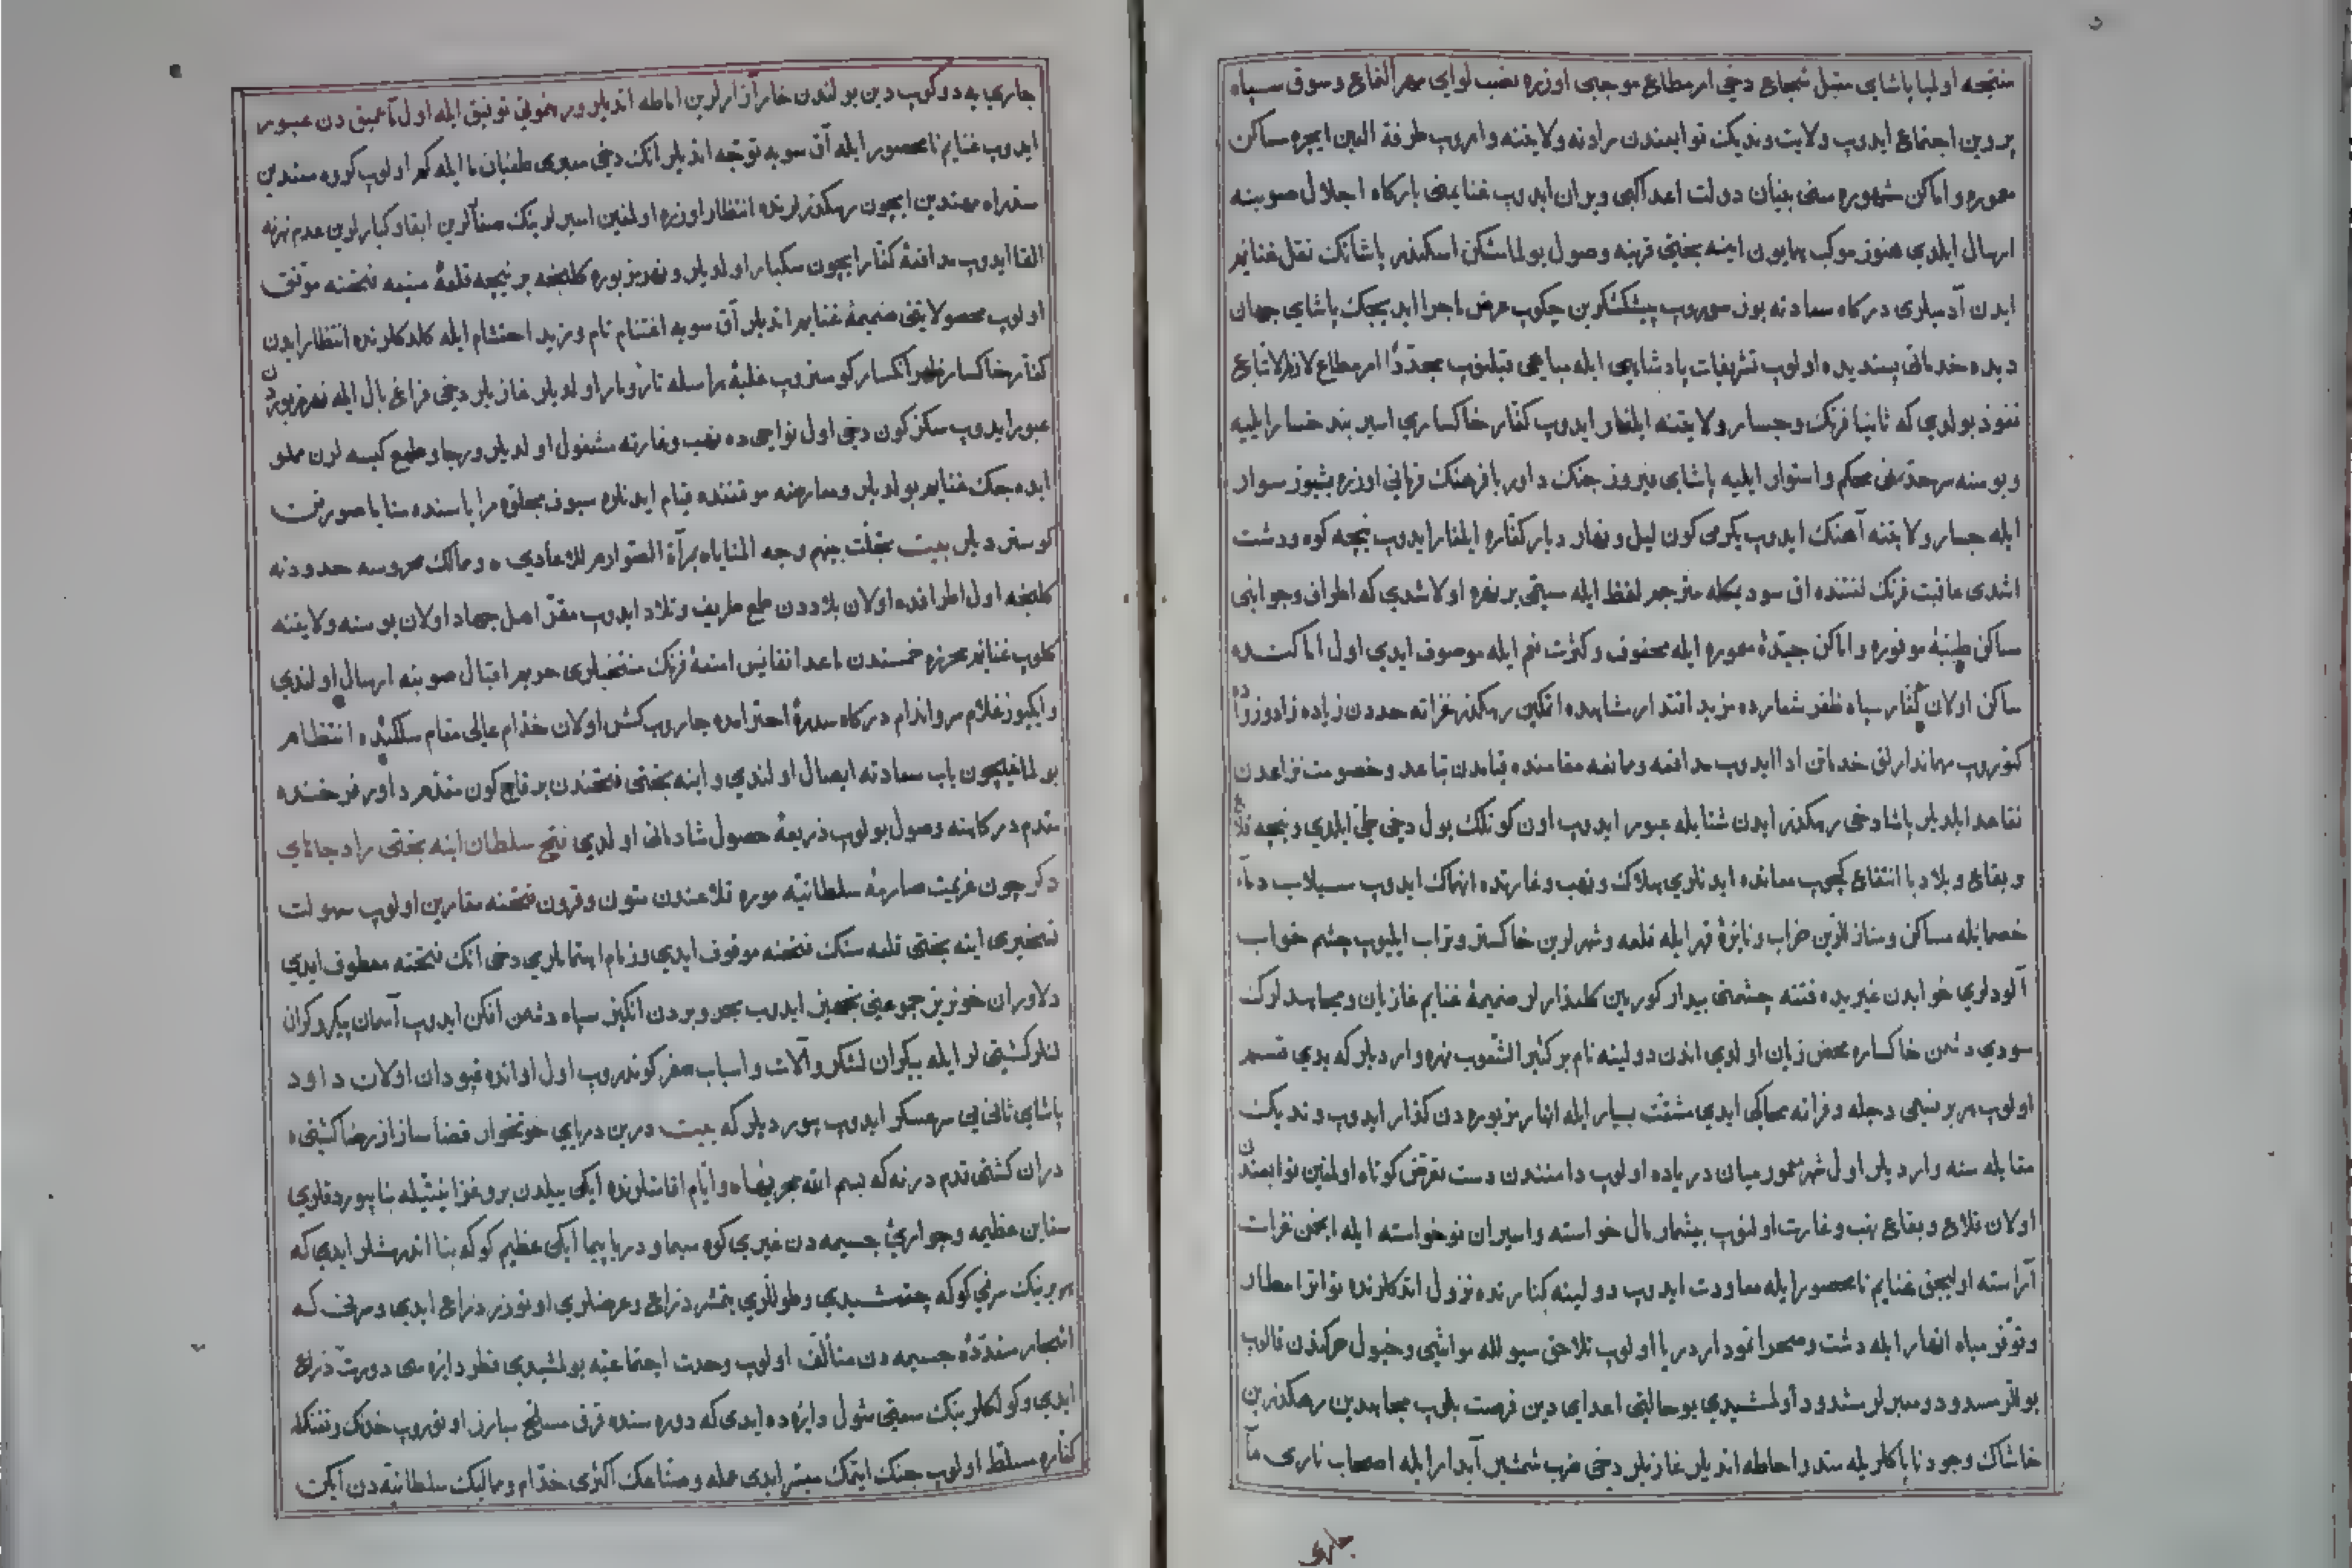 منتجه اولیا پاشای مقبل شجاع دخی امر مطاع موجبی اوزره نصب لوای مهر التفاع و سوق سپاه
پروین اجتماع ایدوب ولایت وندیک توابعندن مرادنه ولایتنه واروب طرفة العین ایچره مساکن
معموره و اماکن مشهوره سنی بنیان دولت اعدا کبی ویران ایدوب غنایمنی بارکاه اجلال صوبینه
ارسال ایلدی هنوز موکب همایون اینه بختی قربنه وصول بولمامشکن اسکندر پاشانک نقل غنایم
ایدن آدمیلری درکاه سعادته یوز سوروب پیشکشلرین چکوب عرض ماجرا ایدیجک پاشای جهان
دیده خدماتی پسندیده اولوب تشریفات پادشاهی ایله مباهی قیلنوب مجددا امر مطاع لازم الاتباع
نفوذ بولدی که ثانیا فرنک و جسار ولایتنه ایلغار ایدوب کفار خاکساری اسیر بند خسار ایلیه
و بوسنه سرحدینی محکم و استوار ایلیه پاشای فیروز جنک داور با فرهنک فرمانی اوزره بشیوز سوار
ایله جسار ولایتنه آهنک ایدوب یکرمی کون لیل و نهار دیار کفاره ایلغار ایدوب نیچه کوه و دشت
اشدی عاقبت فرنک لغتنده اق سو دیمکله مترجم لفظ ایله مسمی بر نهره اولاشدی که اطراف و جوانبی
مساکن طیبهٔ موفوره و اماکن جیدهٔ معموره ایله محفوف و کثرت نعم ایله موصوف ایدی اول اماکنده
ساکن اولان کفار سپاه ظفر شعارده مزید اقتدار مشاهده اتمکین رهکذر غزاته حددن زیاده زاد و زواده
کتوروب مهماندارلق خدماتن ادا ایدوب مدافعه و ممانعه مقامنده قیامدن تباعد و خصومت نزاعدن
تقاعد ایلدیلر پاشا دخی رهکذر ایدن شتابله عبور ایدوب اون کونلک یول دخی طی ایلدی و نیچه قلاع
و بقاع و بلاد با انتفاع کچوب معانده ایدنلری هلاک و نهب و غارتده انهماک ایدوب سیلاب دماء
خصمایله مساکن و منازللرین خراب و نایرهٔ قهر ایله قلعه و شهرلرین خاکستر و تراب ایلیوب چشم خواب
آلودلری خوابدن غیری‌ده فتنه چشمنی بیدار کورمین کلعذارلر ضمیمهٔ غنایم غازیان و مجاهدلرک
سودی دشمن خاکساره محض زیان اولدی اندن دولینه نام بر کثیر الشعوب نهره واردیلر که یدی قسم
اولوب هر بر قسمی دجله و فراته محاکی ایدی مشقت بسیار ایله انهار مزبوره دن کذار ایدوب وندیک
مقابله سنه واردیلر اول شهر معمور میان دریاده اولوب دامنندن دست تعرض کوتاه اولمغین توابعندن
اولان قلاع و بقاع نهب و غارت اولنوب بیشمار مال خواسته و اسیران نوخواسته ایله انجمن غزات
آراسته اولیجق غنایم نامحصور ایله معاودت ایدوب دولینه کنارنده نزول اتدکلرنده تواتر امطار
و توفر میاه انهار ایله دشت و صحرا نمودار دریا اولوب تلاحق سیولله مواشی و خیول حرکتدن قالوب
یوللر مسدود و معبرلر مشدود اولمشیدی بو حالتی اعدای دین فرصت بیلوب مجاهدین رهکذرین
خاشاک وجود ناپاکلریله سد و احاطه اتدیلر غازیلر دخی ضرب شمشیر آبدار ایله اصحاب ناری مآء
جاری
جاری یه دوکوب دین یولندن خار آزارلرین اماطه اتدیلر و رهنمونی توفیق ایله اول مآء عمیق دن عبور
ایدوب غنایم نامحصور ایله آق سویه توجه اتدیلر انک دخی معبری طغیان ما ایله کم اولوب کروه مفسدین
سد راه مهتدین ایچون رهکذرلرنده انتظار اوزره اولمغین اسیرلرینک صغارلرین ابقا و کبارلرین عدم نهرنه
القا ایدوب مدافعهٔ کفار ایچون سبکبار اولدیلر و نهر مزبوره کلنجه بر نیچه قلعهٔ منیعه فتحنه موفق
اولوب محصولاتنی ضمیمهٔ غنایم اتدیلر آق سویه اغتنام تام و مزید احتشام ایله کلدکلرنده انتظار ایدن
کفار خاکسار ظهر انکسار کوستروب غلبهٔ هراسله تار و مار اولدیلر غازیلر دخی فراغ بال ایله نهر مزبوردن
عبور ایدوب سکز کون دخی اول نواحی ده نهب و غارته مشغول اولدیلر و رجا و طمع کیسه لرن مملو
ایده جک غنایم بولدیلر و معارضه موقفنده قیام ایدنلره سیوف مجلوه مرایاسنده منایا صورتن
کوستردیلر بیت تجلت بینهم وجه المنایا بمرآة الصوارم للاعادی و ممالک محروسه حدودنه
کلنجه اول اطرافده اولان بلاددن طمع طریف و تلاد ایدوب مقر اهل جهاد اولان بوسنه ولایتنه
کلوب غنایم محرزه خمسندن ماعدا نفایس امتعهٔ فرنک منتخبلری حریم اقبال صوبنه ارسال اولندی
و ایکیوز غلام سرو اندام درکاه سدرهٔ احترامده جاروب کش اولان خدام عالی مقام سلکنده انتظام
بولمغیچون باب سعادته ایصال اولندی و اینه بختی فتحندن بر قاچ کون مقدم داور فرخنده
مقدم درکاهنه وصول بولوب ذریعهٔ حصول شادمانی اولدی فتح سلطان اینه بختی را دجاهای
دکر چون عزیمت صارمهٔ سلطانیه موره قلاعندن متون و قرون فتحنه مقارین اولوب سهولت
تسخیری اینه بختی قلعه سنک فتحنه موقوف ایدی و زمام اهتماملری دخی انک فتحنه معطوف ایدی
دلاوران خونریز جمعیتی تجهیز ایدوب بحر و بردن انکیز سپاه دشمن افکن ایدوب آسمان پیکر و کران
لنلر کشتی لر ایله بیکران لشکر و آلات و اسباب سفر کوندروب اول اوانده قپودان اولان داود
پاشای ثانی یی سرعسکر ایدوب بیوردیلر که بیت درین دریایی خونخوار قضا ساز از رضا کشتی
دران کشتی قدم درنه که بسم الله مجریها و ایام اقامتلرنده ایکی ییلدن برو غزا نیتیله بنا بیوردقلری
سفاین عظیمه و جواری جسیمه دن غیری کوه سیما و دریا پیما ایکی عظیم کوکه بنا اتدرمشلر ایدی که
هر برینک سرنی کوکه چقمشیدی و طوللری یتمشر ذراع و عرضلری اوتوزر ذراع ایدی و سرنی که
اشجار متعددهٔ جسیمه دن متألف اولوب وحدت اجتماعیه بولمشیدی قطر دایره سی دورت ذراع
ایدی و کوکلرینک سعتی شول دایره ده ایدی که دوره سنده قرق مسلح مبارز اوتوروب خدنک و تفنکله
کفاره مسلط اولوب جنک ایتمک میسر ایدی عمله و صناعک اکثری خدام و ممالیک سلطانیه دن ایکن